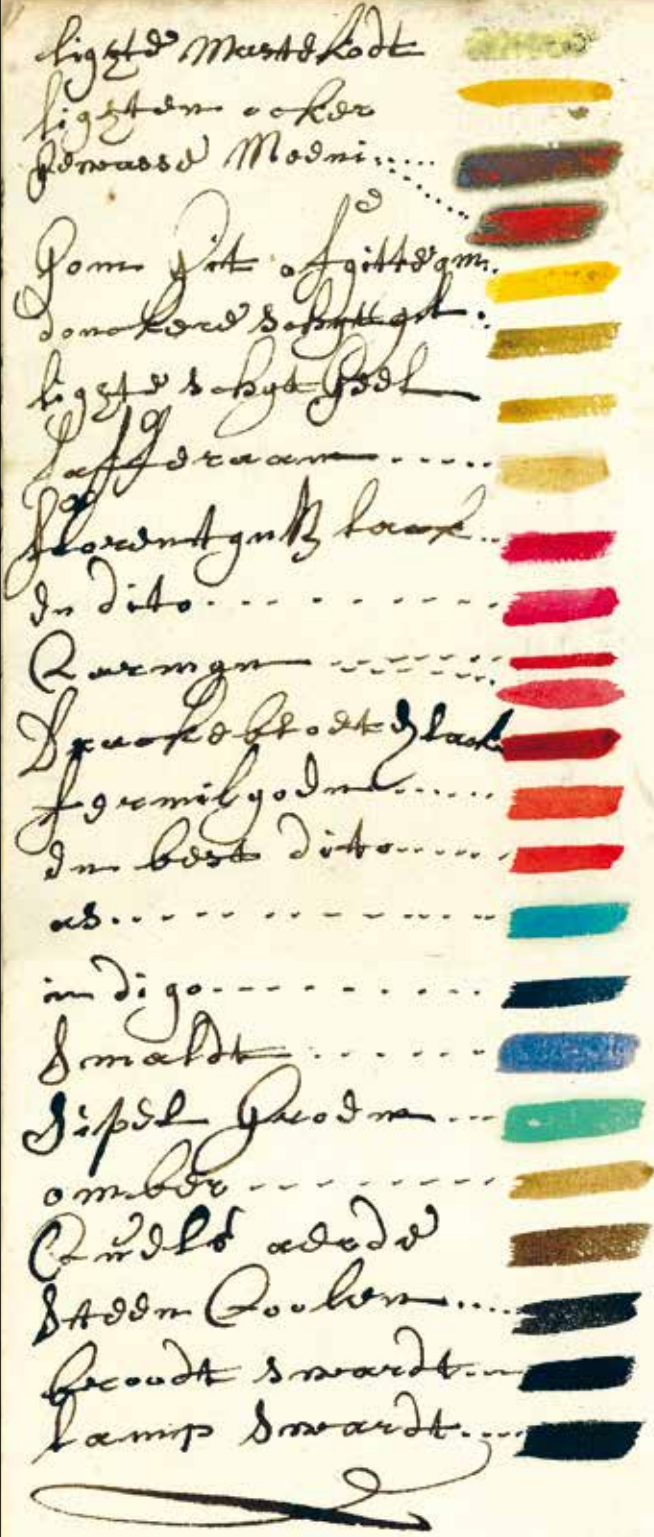 ligte Mastekodt
ligten ocker
gewasse Meeni
gom git ofgittegm
donckere schytgel
ligte schytgeel
saffferaan
florentynß lack
en dito
Carmyn
Drackebloet lack
fermilyoen
en best dito
as
indigo
Smaldt
Sipel groen
omber
Cuels aerde
Steen Coolen
broodt swardt
lamp swardt